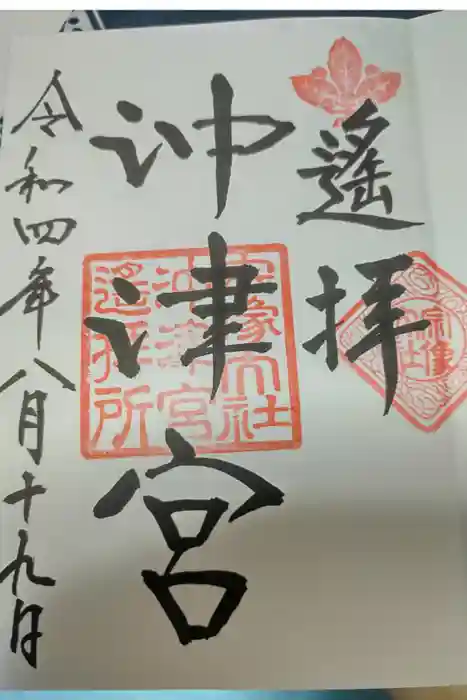 遙拝
沖津宮
宗像大社
沖津宮
遙拝所
令和四年八月十九日